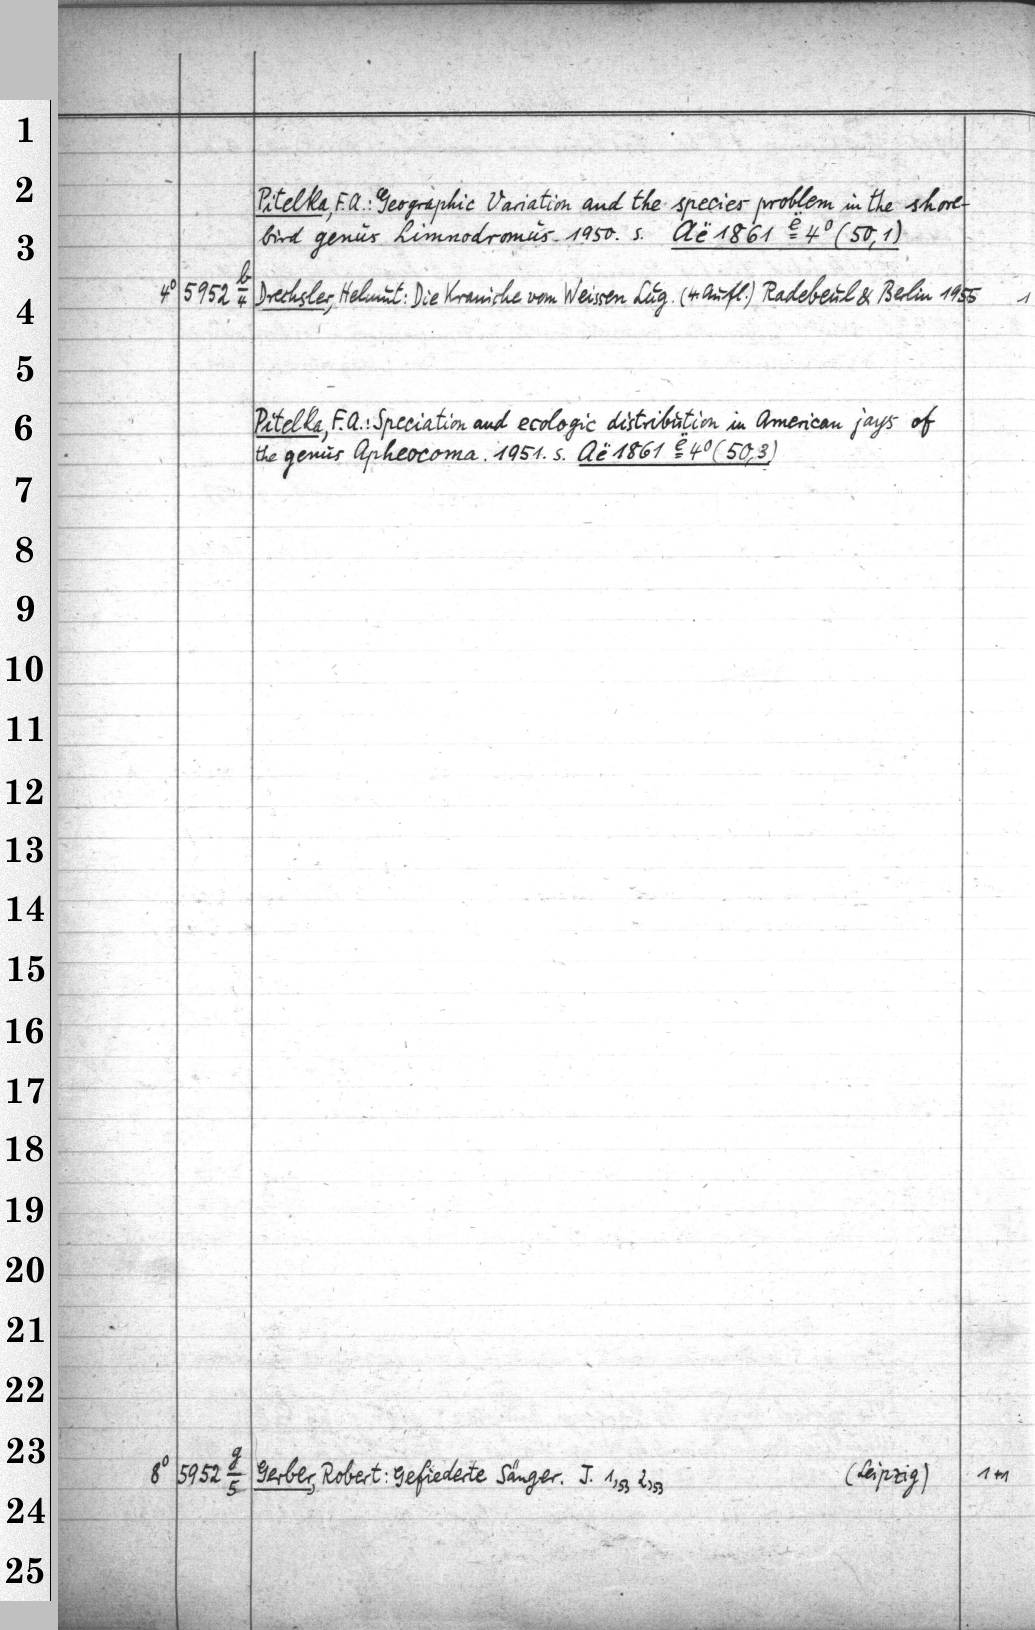 1
2
Pitelka, F.A.: Geographic Variation and the species problem in the shore-
3
bird genus Limnodromus. 1950. s. Aë 1861 ë 4° (50,1)
4° 5952 b/4 Drechsler, Helmut: Die Kraniche vom Weissen Lug. (4. Aufl.) Radebeul & Berlin 1955 1
4
5
6
Pitelka, F.A.: Speciation and ecologic distribution in American jays of
the genus Apheocoma. 1951. s. Aë 1861 ë 4° (50,3)
7
8
9
10
11
12
13
14
15
16
17
18
19
20
21
22
23
8° 5952 g/5 Gerber, Robert: Gefiederte Sänger. J. 1,53 2,53 (Leipzig) 1+1
24
25